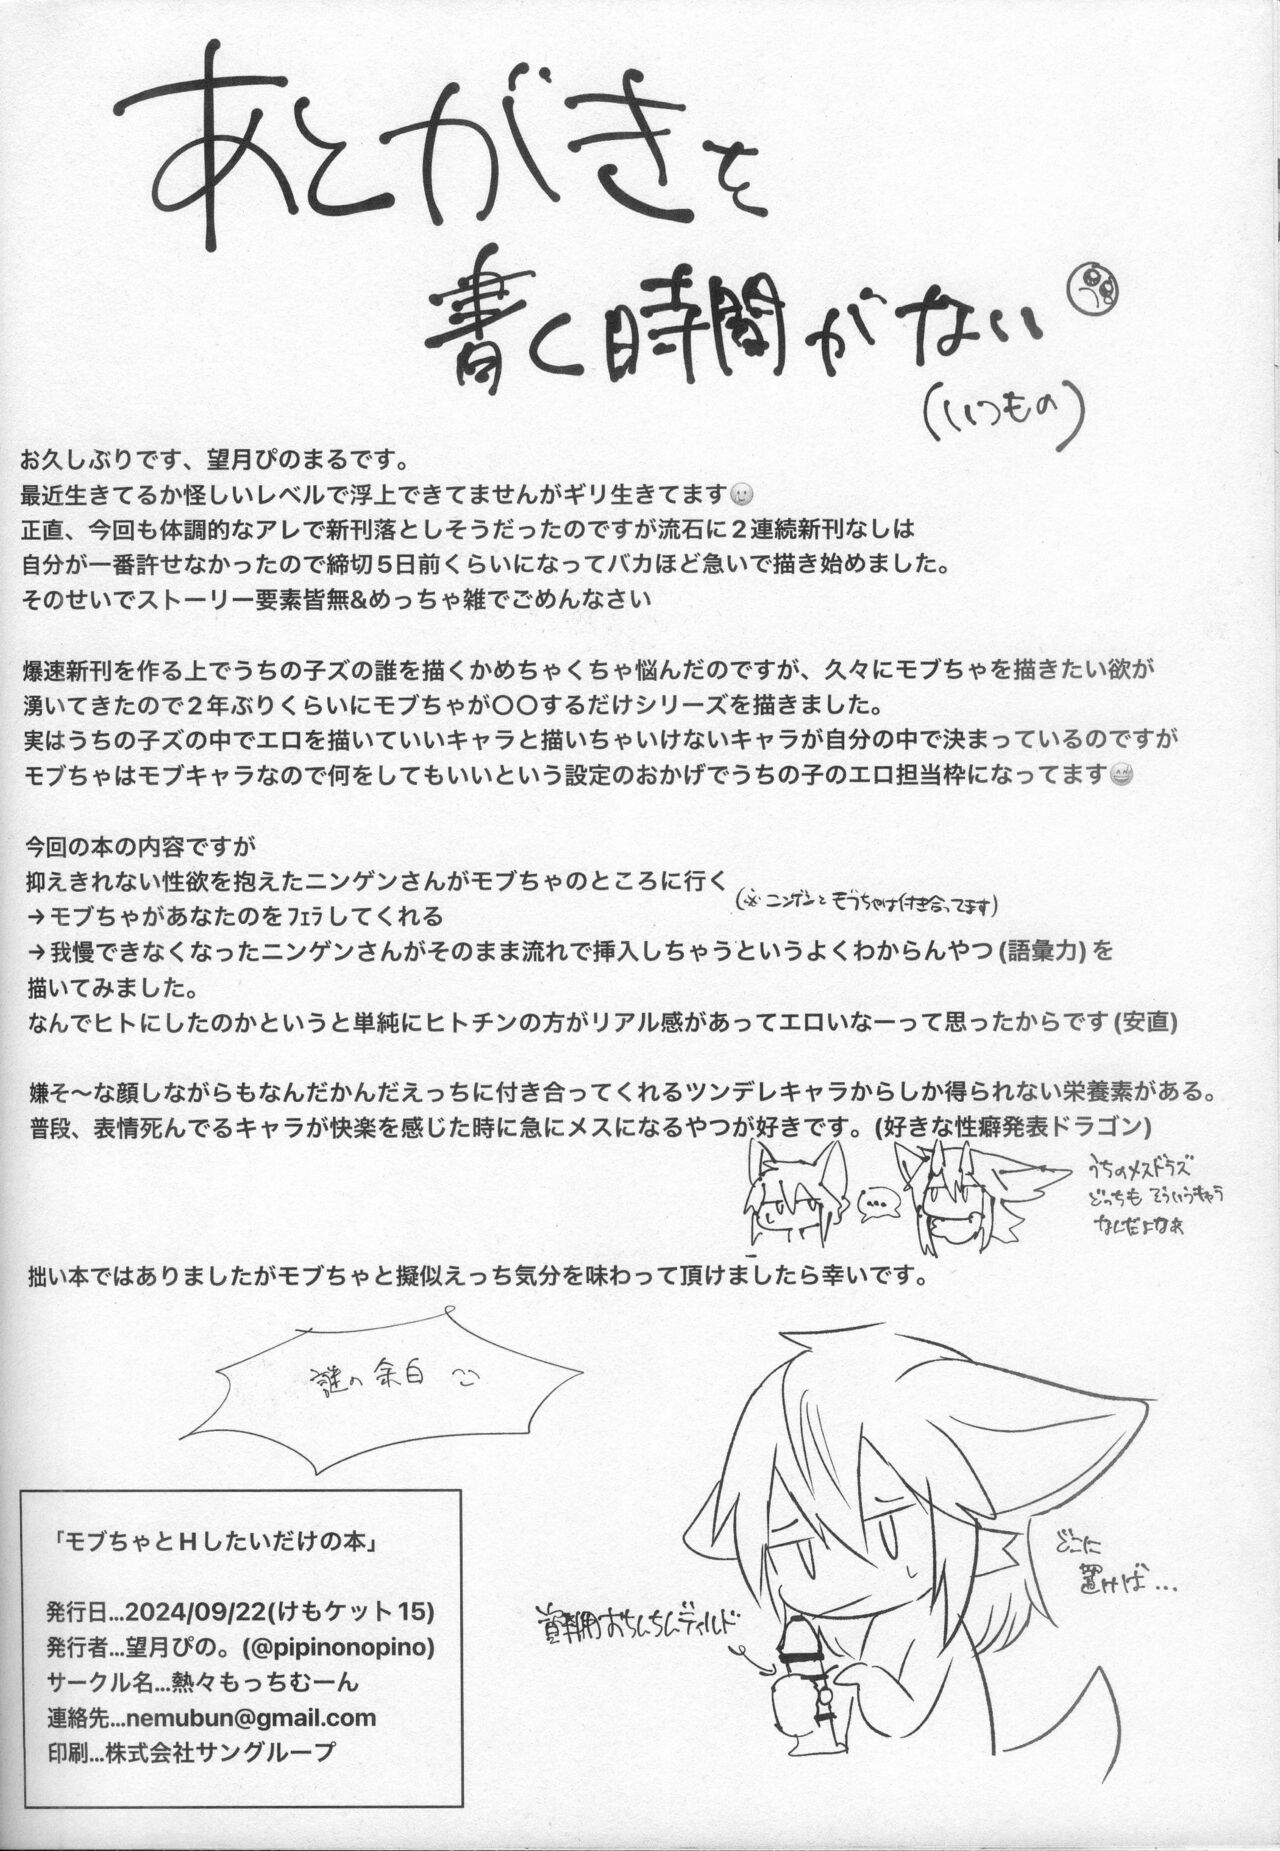 あとがきを
書く時間がない🥺
(いつもの)
お久しぶりです、望月ぴのまるです。
最近生きてるか怪しいレベルで浮上できてませんがギリ生きてます🙂
正直、今回も体調的なアレで新刊落としそうだったのですが流石に２連続新刊なしは
自分が一番許せなかったので締切５日前くらいになってバカほど急いで描き始めました。
そのせいでストーリー要素皆無&めっちゃ雑でごめんなさい
爆速新刊を作る上でうちの子ズの誰を描くかめちゃくちゃ悩んだのですが、久々にモブちゃを描きたい欲が
湧いてきたので２年ぶりくらいにモブちゃが〇〇するだけシリーズを描きました。
実はうちの子ズの中でエロを描いていいキャラと描いちゃいけないキャラが自分の中で決まっているのですが
モブちゃはモブキャラなので何をしてもいいという設定のおかげでうちの子のエロ担当枠になってます😅
今回の本の内容ですが
抑えきれない性欲を抱えたニンゲンさんがモブちゃのところに行く
(※ ニンゲンとモブちゃは付き合ってます)
→モブちゃがあなたのをﾌｪﾗしてくれる
→我慢できなくなったニンゲンさんがそのまま流れで挿入しちゃうというよくわからんやつ(語彙力)を
描いてみました。
なんでヒトにしたのかというと単純にヒトチンの方がリアル感があってエロいなーって思ったからです(安直)
嫌そ〜な顔しながらもなんだかんだえっちに付き合ってくれるツンデレキャラからしか得られない栄養素がある。
普段、表情死んでるキャラが快楽を感じた時に急にメスになるやつが好きです。(好きな性癖発表ドラゴン)
...
うちのメスドラズ
どっちもそういうキャラ
なんだよなぁ
拙い本ではありましたがモブちゃと擬似えっち気分を味わって頂けましたら幸いです。
謎の余白
どこに
置けば...
資料用おちんちんディルド
「モブちゃとHしたいだけの本」
発行日...2024/09/22(けもケット15)
発行者...望月ぴの。(@pipinonopino)
サークル名...熱々もっちむーん
連絡先...nemubun@gmail.com
印刷...株式会社サングループ